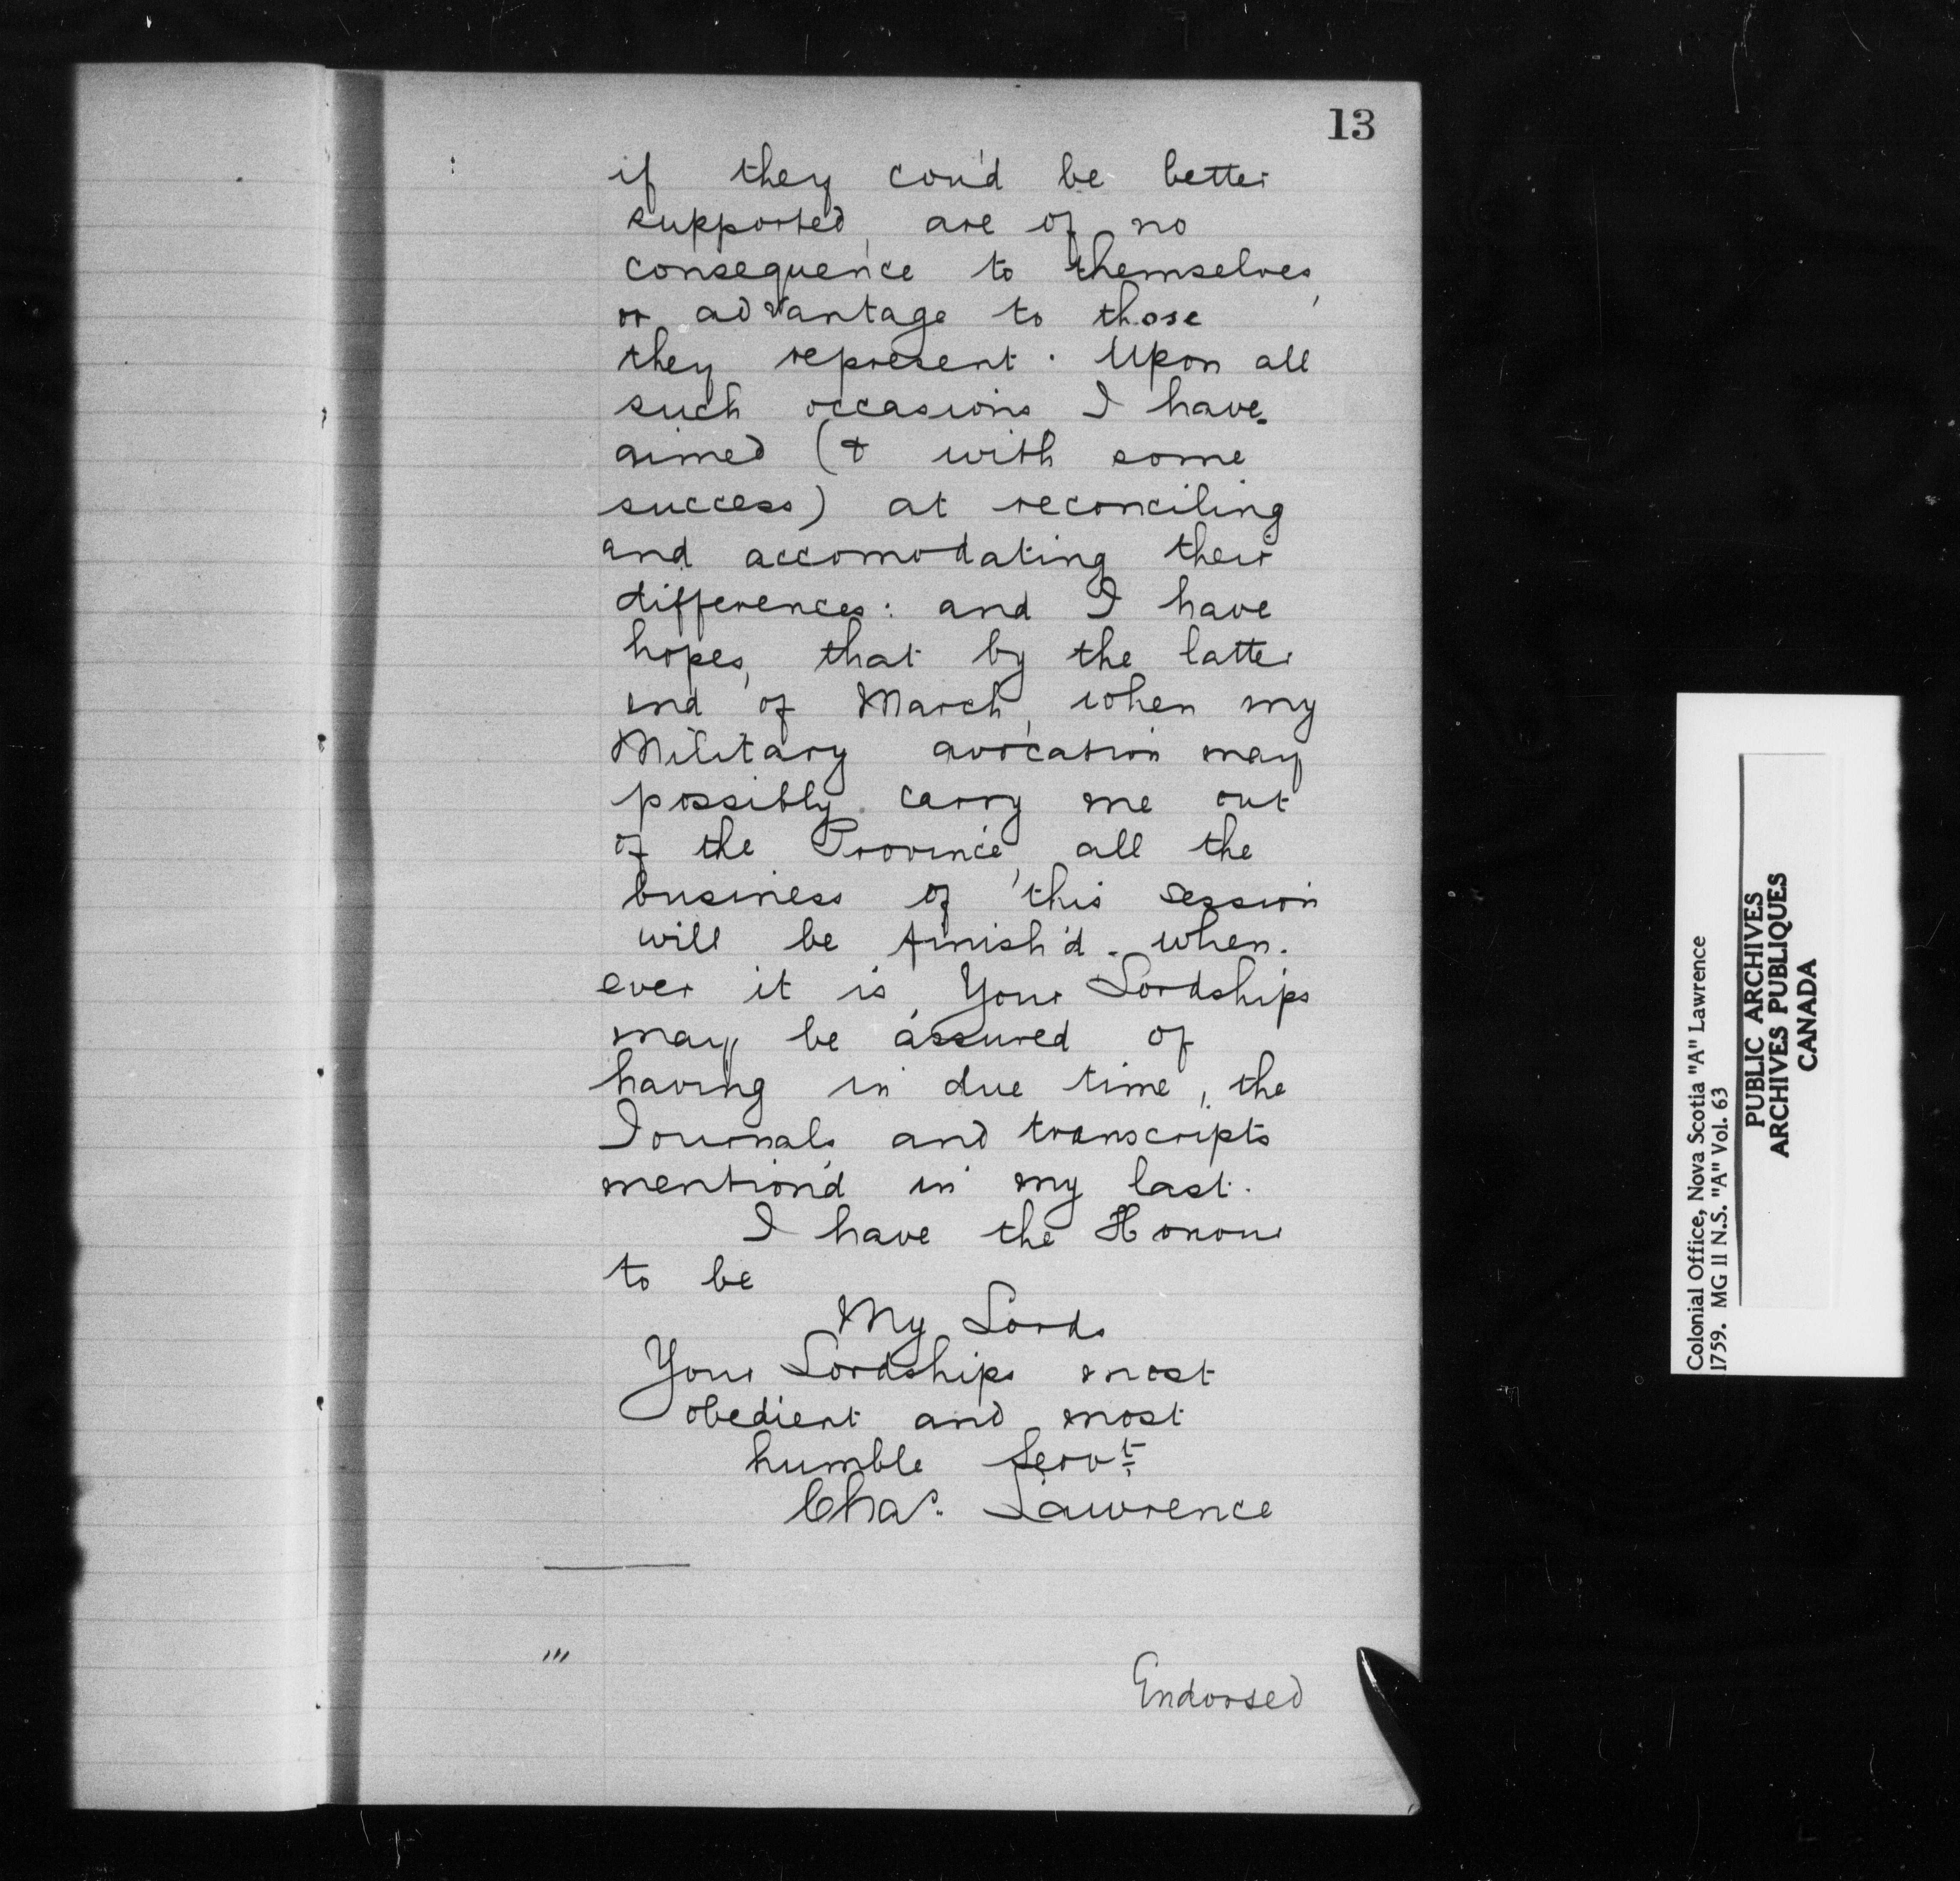 13
if they cou'd be better
supported, are of no
consequence to themselves,
or advantage to those
they represent. Upon all
such occasions I have
aimed (& with some
success) at reconciling
and accomodating their
differences: and I have
hopes, that by the latter
end of March, when my
Military avocation may
possibly carry me out
of the Province, all the
business of this session
will be finish'd. when-
ever it is, Your Lordships
may be assured of
having in due time, the
Journals and transcripts
mention'd in my last.
I have the Honour
to be
My Lords
Your Lordships most
obedient and most
humble Servt
Chas. Lawrence
"'
Endorsed
Colonial Office, Nova Scotia "A" Lawrence
1759. MG 11 N.S. "A" Vol. 63
PUBLIC ARCHIVES
ARCHIVES PUBLIQUES
CANADA